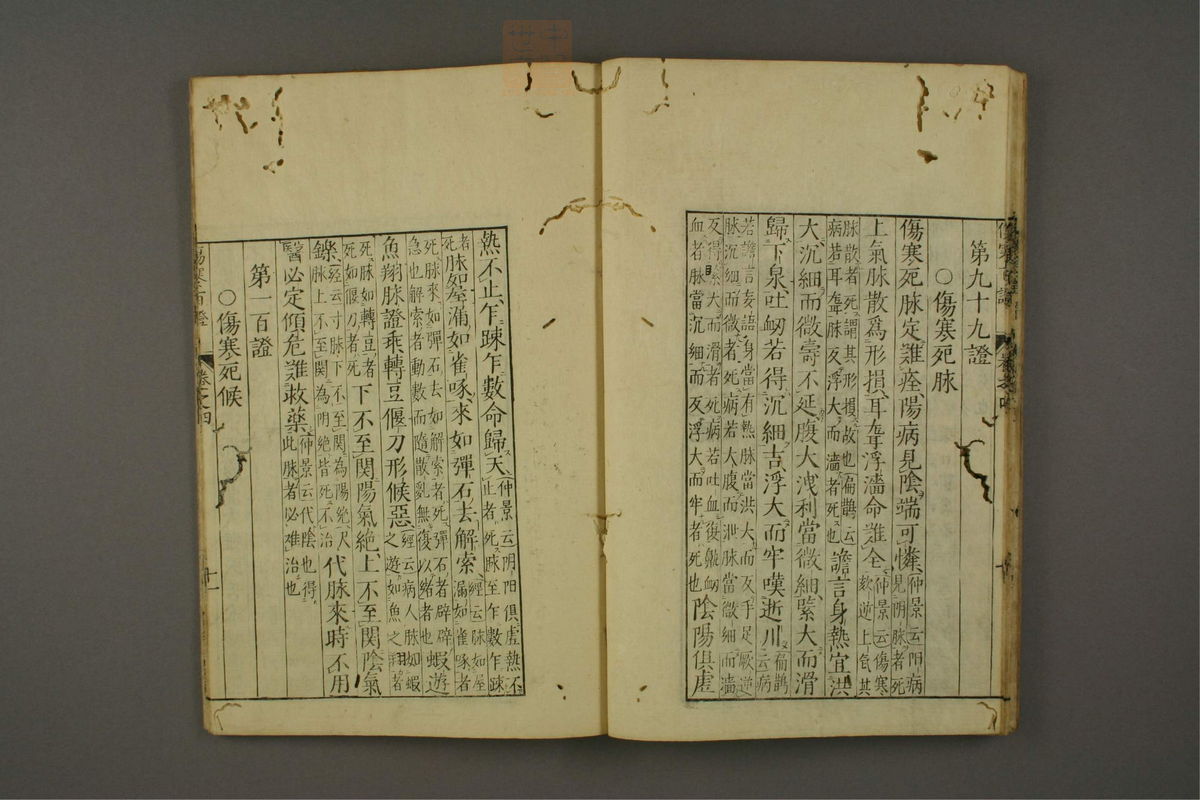 第九十九證
○傷寒死脉
傷寒死脉定誰痊陽病見陰端可憐仲景云陽病見阴脉者死
上氣脉散爲形損耳聾浮濇命誰全仲景云傷寒欬逆上气其
脉散者死謂其形損故也扁鵲云病若耳聾脉反浮大而濇者死也譫言身熱宜洪
大沉細而微壽不延腹大洩利當微細緊大而滑
歸下泉吐衂若得沉細吉浮大而牢嘆逝川扁鵲云病
若譫言妄語身當有熱脉當洪大而反手足厥逆脉沉細而微者死病若大腹而泄脉當微細而濇
反得緊大而滑者死病若吐血復鼽衂血者脉當沉細而反浮大而牢者死也陰陽俱虛
熱不止乍踈乍數命歸天仲景云阴阳俱虛熱不止者死脉至乍數乍踈
者死脉如屋漏如雀啄來如彈石去解索經云脉如屋漏如雀啄者
死脉來如彈石去如解索者死彈石者辟辟急也解索者動數而隨散亂無復以緒者也蝦遊
魚翔脉證乖轉豆偃刀形候惡經云病人脉如蝦之遊如魚之翔者
死脉如轉豆者死如偃刀者死下不至関陽氣絶上不至関陰氣
鑠經云寸脉下不至関為陽绝尺脉上不至関為阴绝皆死不治代脉來時不用
醫必定傾危誰救藥仲景云代陰也得此脉者必难治也
第一百證
○傷寒死候
傷寒百證
卷之四
十一